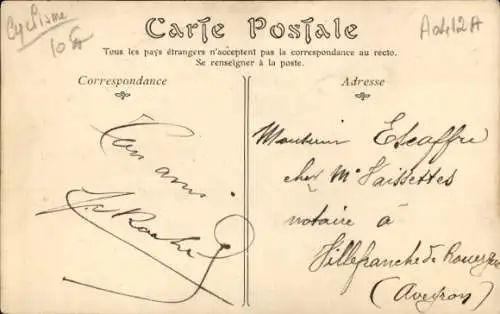 Cyclisme
10 F
Carte Postale
Tous les pays étrangers n'acceptent pas la correspondance au recto.
Se renseigner à la poste.
Correspondance
Adresse
Ton ami
Monsieur Escaffre
chez Me Vaissettes
notaire à
Villefranche de Rouergue
(Aveyron)